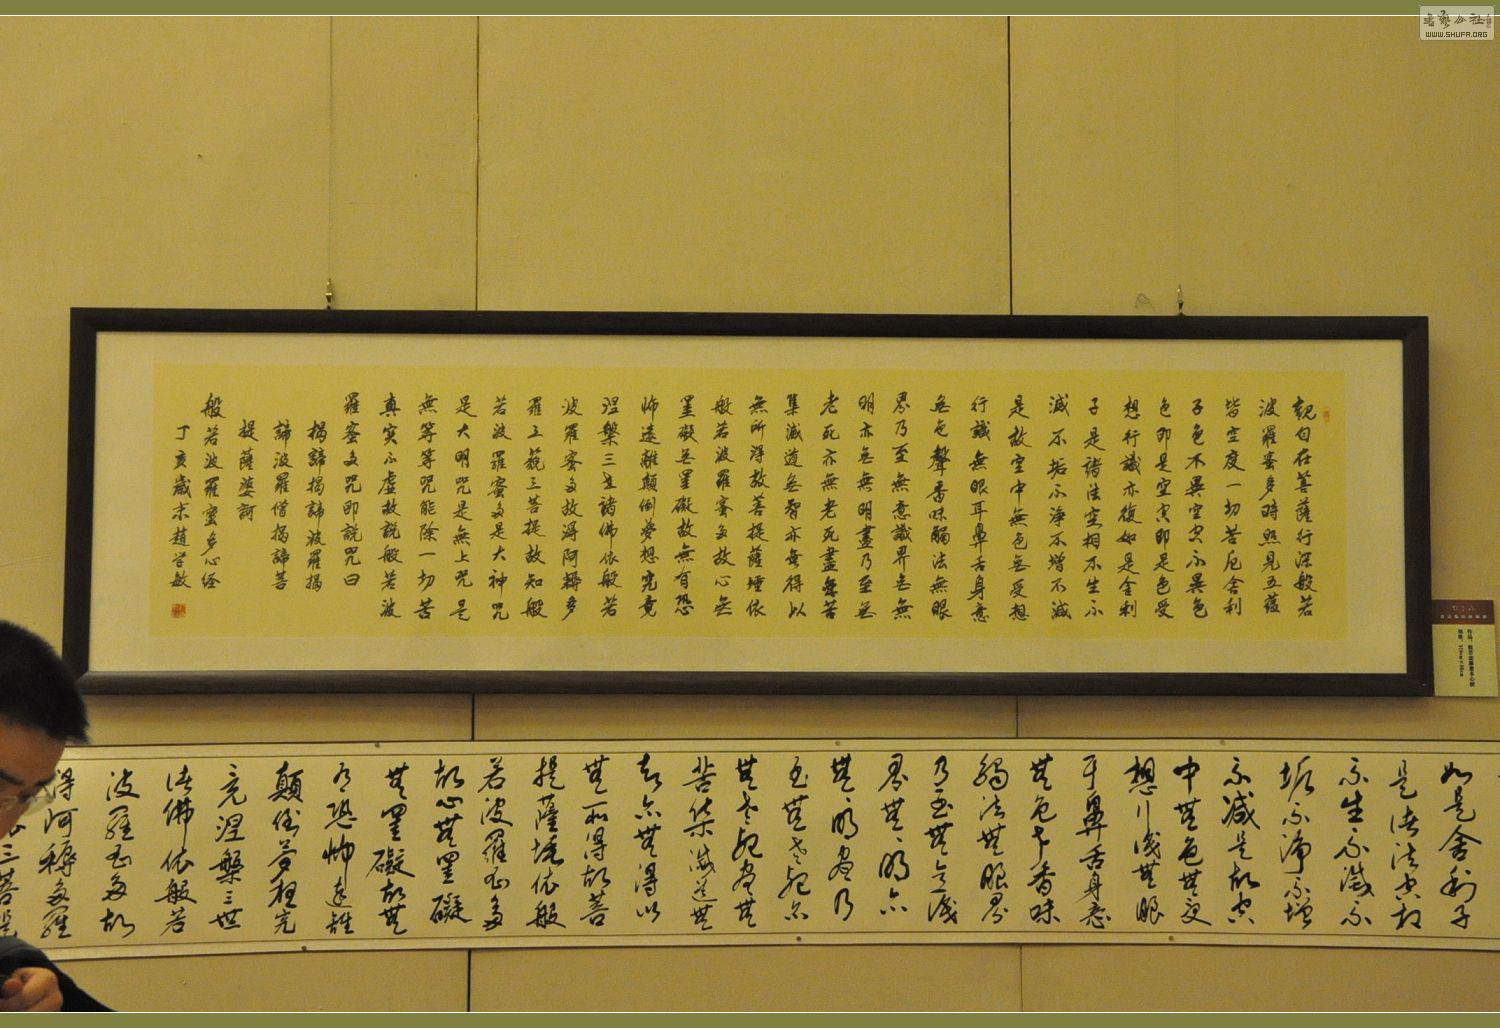 觀自在菩薩行深般若
波羅蜜多時照見五蘊
皆空度一切苦厄舍利
子色不異空空不異色
色即是空空即是色受
想行識亦復如是舍利
子是諸法空相不生不
滅不垢不淨不增不減
是故空中無色無受想
行識無眼耳鼻舌身意
無色聲香味觸法無眼
界乃至無意識界無無
明亦無無明盡乃至無
老死亦無老死盡無苦
集滅道無智亦無得以
無所得故菩提薩埵依
般若波羅蜜多故心無
罣礙無罣礙故無有恐
怖遠離顛倒夢想究竟
涅槃三世諸佛依般若
波羅蜜多故得阿耨多
羅三藐三菩提故知般
若波羅蜜多是大神咒
是大明咒是無上咒是
無等等咒能除一切苦
真實不虛故說般若波
羅蜜多咒即說咒曰
揭諦揭諦波羅揭
諦波羅僧揭諦菩
提薩婆訶
般若波羅蜜多心经
丁亥歲末趙学敏
如是舍利子
是諸法空相
不生不滅不
垢不淨不增
不減是故空
中無色無受
想行識無眼
耳鼻舌身意
無色聲香味
觸法無眼界
乃至無意識
界無無明亦
無無明盡乃
至無老死亦
無老死盡無
苦集滅道無
智亦無得以
無所得故菩
提薩埵依般
若波羅蜜多
故心無罣礙
無罣礙故無
有恐怖遠離
顛倒夢想究
竟涅槃三世
諸佛依般若
波羅蜜多故
得阿耨多羅
三菩提
WWW.SHUFA.ORG